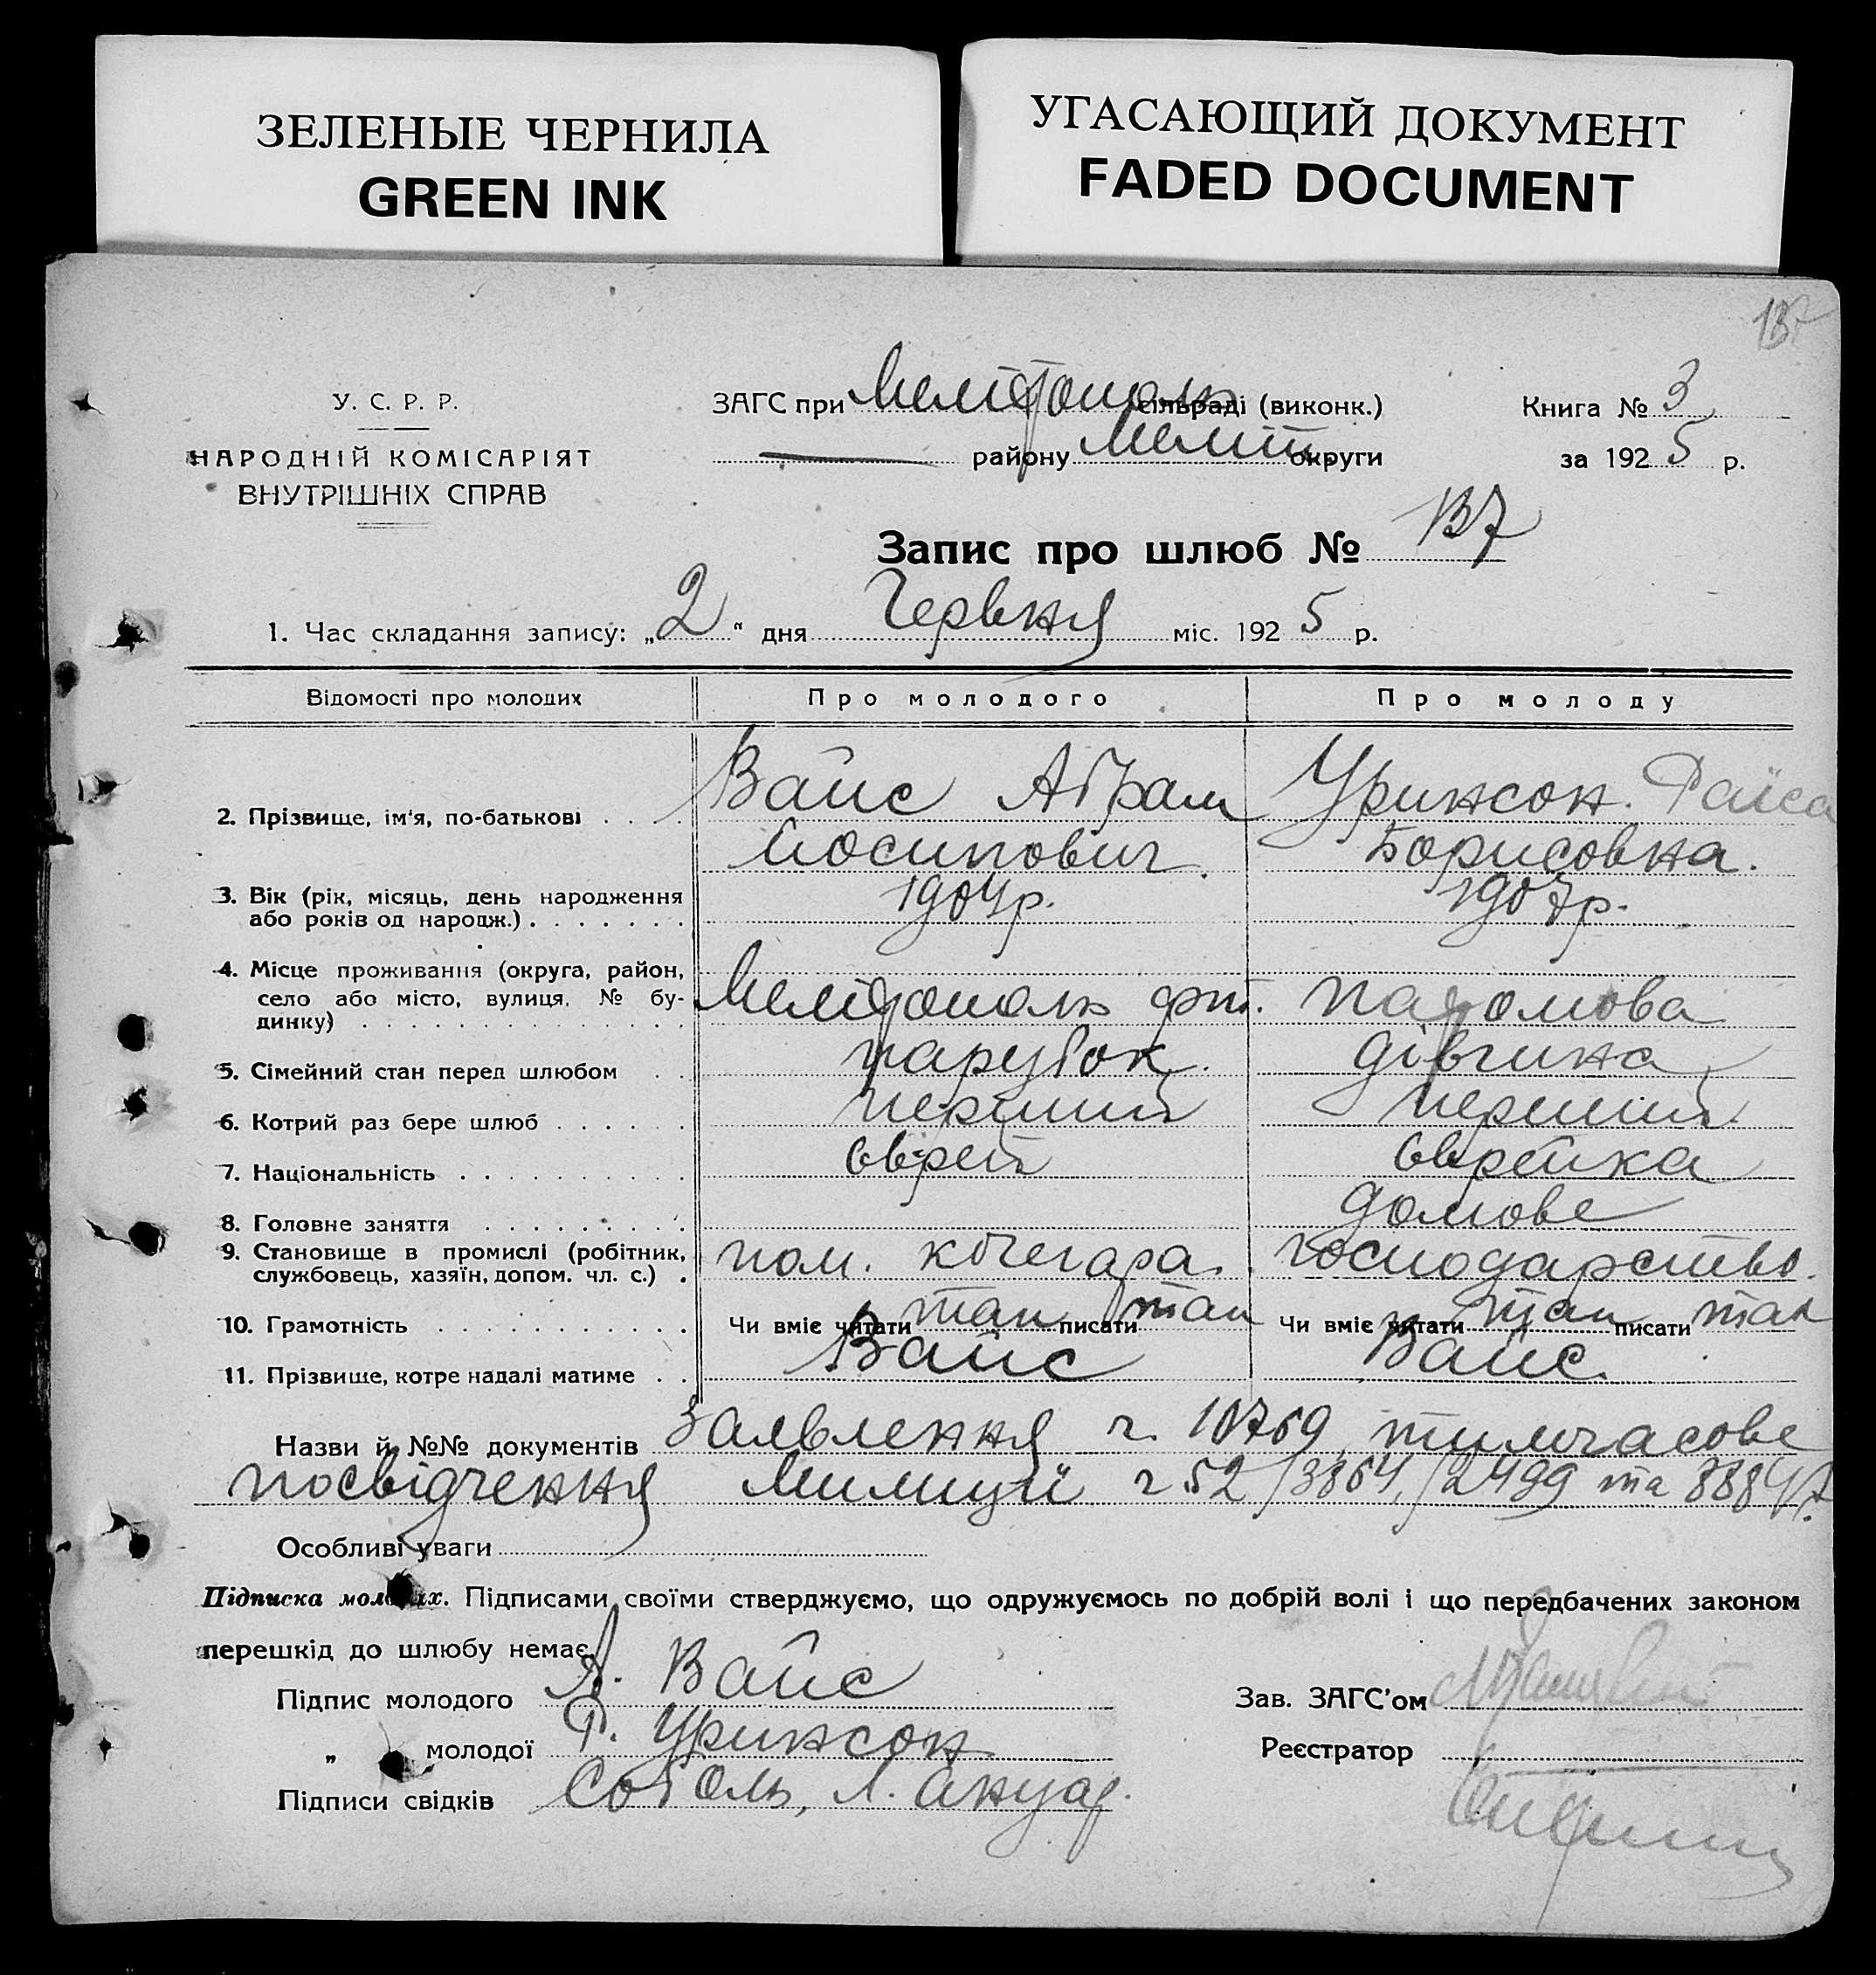 ЗЕЛЕНЫЕ ЧЕРНИЛА
GREEN INK
УГАСАЮЩИЙ ДОКУМЕНТ
FADED DOCUMENT
137
У. С. Р. Р.
НАРОДНІЙ КОМІСАРІЯТ
ВНУТРІШНІХ СПРАВ
ЗАГС при Мелітополь сільраді (виконк.)
району Меліт. округи
Книга № 3
за 1925 р.
Запис про шлюб № 137
1. Час складання запису: „2“ дня Червня міс. 1925 р.
Відомості про молодих Про молодого Про молоду
2. Прізвище, ім'я, по-батькові . . . . Вайс Абрам Йосипович Уринсон Раїса Борисовна.
3. Вік (рік, місяць, день народження або років од народж.) . . . . . . . 1904р. 1907р.
4. Місце проживання (округа, район, село або місто, вулиця, № будинку) . . . . Мелітополь
5. Сімейний стан перед шлюбом . . парубок. дівчина
6. Котрий раз бере шлюб . . . . . . перший перший
7. Національність . . . . . . . . . . єврей єврейка
8. Головне заняття . . . . . . . . . домове
9. Становище в промислі (робітник, службовець, хазяїн, допом. чл. с.) . пом. кочегара. господарство.
10. Грамотність . . . . . . . . . . . Чи вміє читати так писати так Чи вміє читати так писати так
11. Прізвище, котре надалі матиме . . Вайс Вайс.
Назви й №№ документів Заявлення ч. 10769, тимчасове
посвідчення Милиции ч 52/3864, /2499 та 8884/7.
Особливі уваги
Підписка молодих. Підписами своїми стверджуємо, що одружуємось по добрій волі і що передбачених законом
перешкід до шлюбу немає.
Підпис молодого А. Вайс
„ молодої Р. Уринсон
Підписи свідків Соболь, Л.
Зав. ЗАГС'ом
Реєстратор